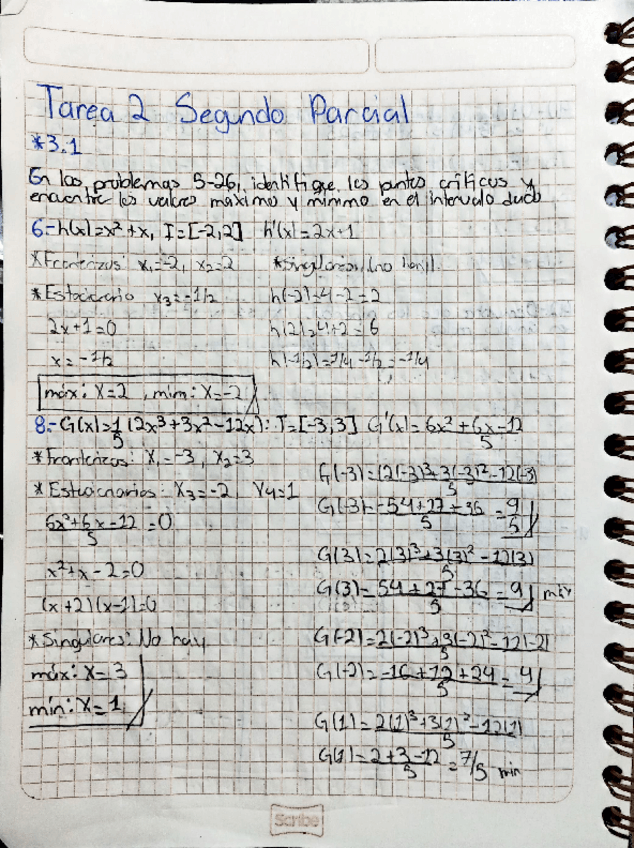 Tarea 2 Segundo Parcial
*3.1
En los problemas 5-26, identifique los puntos críticos y
encuentre los valores máximo y mínimo en el intervalo dado
6.- h(x)=x²+x, I=[-2,2] h'(x)=2x+1
*Fronterizos: x₁=-2, x₂=2 *Singulares: (no hay).
*Estacionario x₃=-1/2 h(-2)=4-2=2
2x+1=0 h(2)=4+2=6
x=-1/2 h(-1/2)=1/4-1/2=-1/4
máx: x=2, mím: x=-2
8.- G(x)=1/5 (2x³+3x²-12x): I=[-3,3] G'(x)=6x²+6x-12/5
*Fronterizos: X₁=-3, X₂=3
G(-3)=(2(-3)³+3(-3)²-12(-3)/5
*Estacionarios: X₃=-2 X4=1
G(-3)=-54+27+36/5=9/5
6x²+6x-12/5=0
G(3)=2(3)³+3(3)²-12(3)/5
x²+x-2=0
G(3)=54+27-36/5=9 máx
(x+2)(x-1)=0
*Singulares: No hay
G(-2)=2(-2)³+3(-2)²-12(-2)/5
máx: X=3
G(-2)=-16+12+24/5=4
mín: X=1
G(1)=2(1)³+3(1)²-12(1)/5
G(1)=2+3-12/5=7/5 min
Scribe